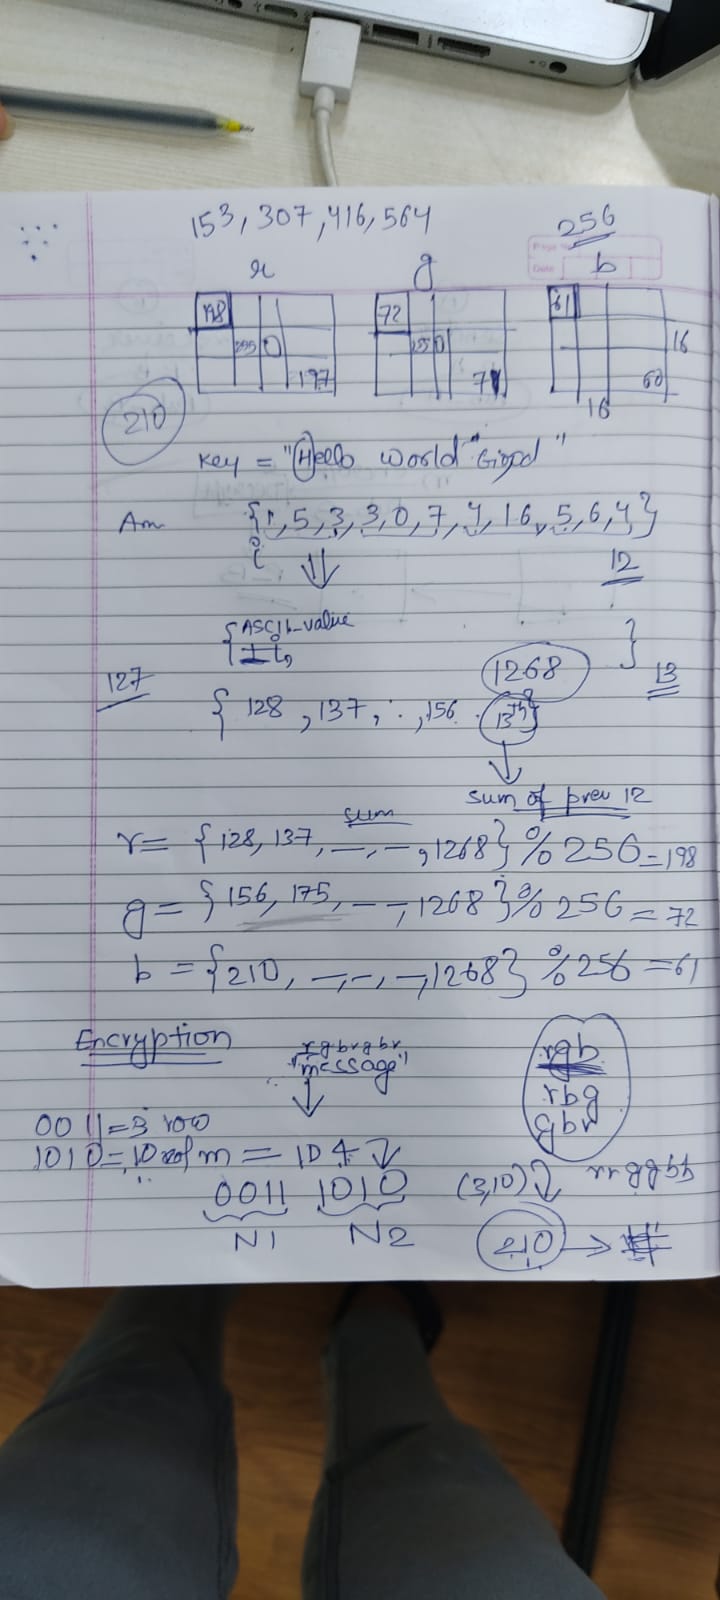 153, 307, 416, 564
256
Page No
Date
r g b
198 72 61
255 0 250
197 71 60
16
16
210
Key = "Hello world "Good"
{1, 5, 3, 3, 0, 7, 4, 16, 5, 6, 4}
i
12
{ASCII value
}
127
1268
13
{ 128, 137, ., ., 156 . 13th}
sum of prev 12
sum
r = { 128, 137, —, —, 1268 } % 256 = 198
g = { 156, 175, — —, 1268 } % 256 = 72
b = { 210, —, —, —, 1268 } % 256 = 61
Encryption
rgbrgbr
"message"
rgb
rbg
grb
0011 = 3 row
1010 = 10 col m = 104
0011 1010 (3,10)
N1 N2
210 →